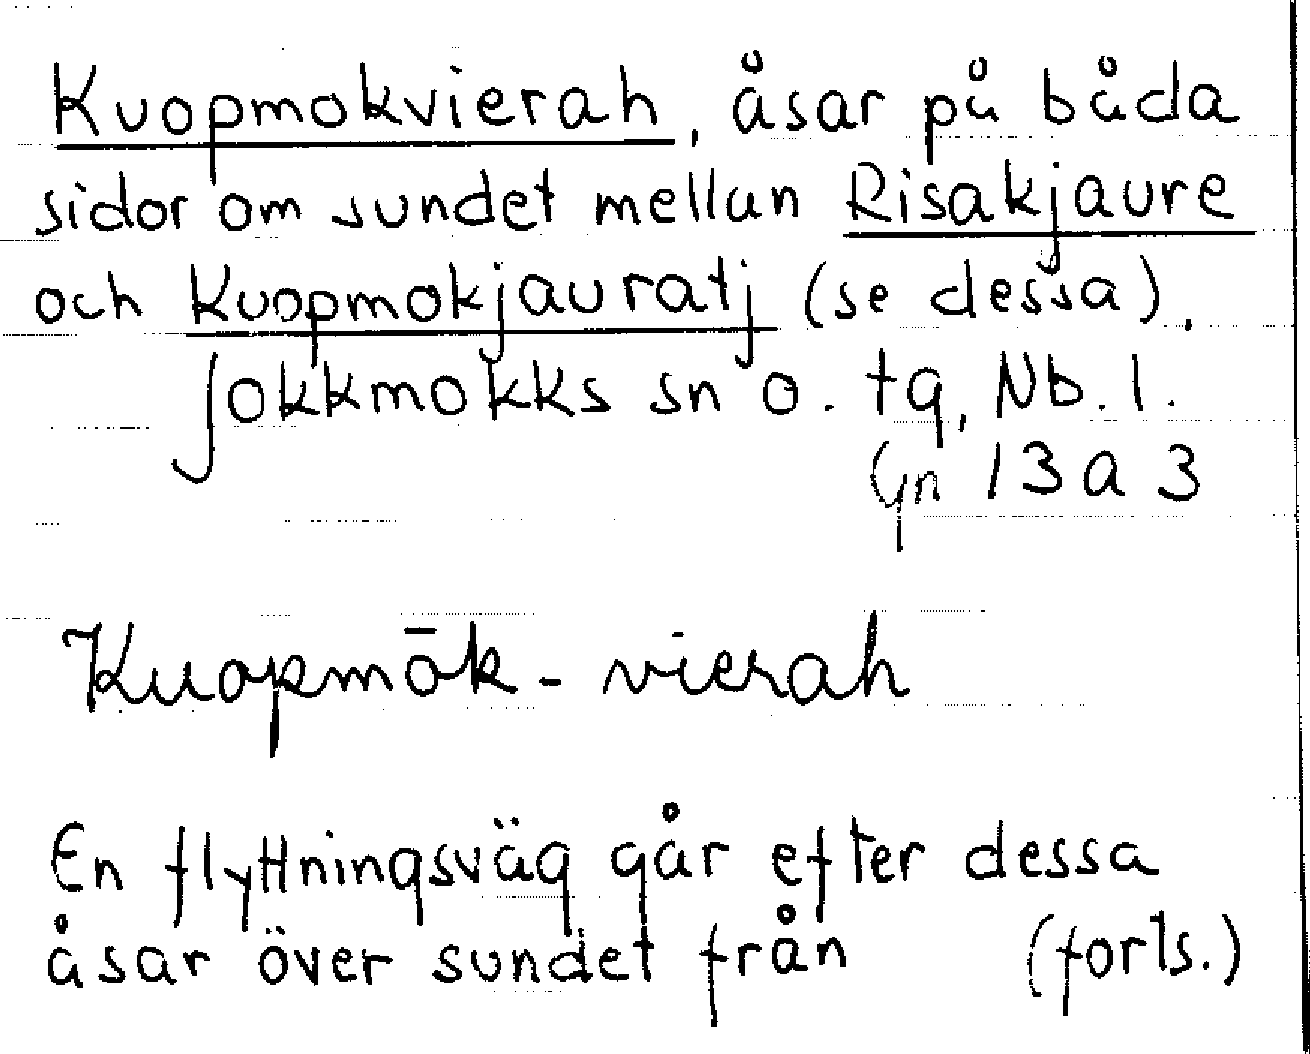 Kuopmokvierah, åsar på båda
sidor om sundet mellan Risakjaure
och Kuopmokjauratj (se dessa).
Jokkmokks sn o. tg, Nb. l.
Gn 13 a 3
Kuopmōk-vierah
En flyttningsväg går efter dessa
åsar över sundet från (forts.)